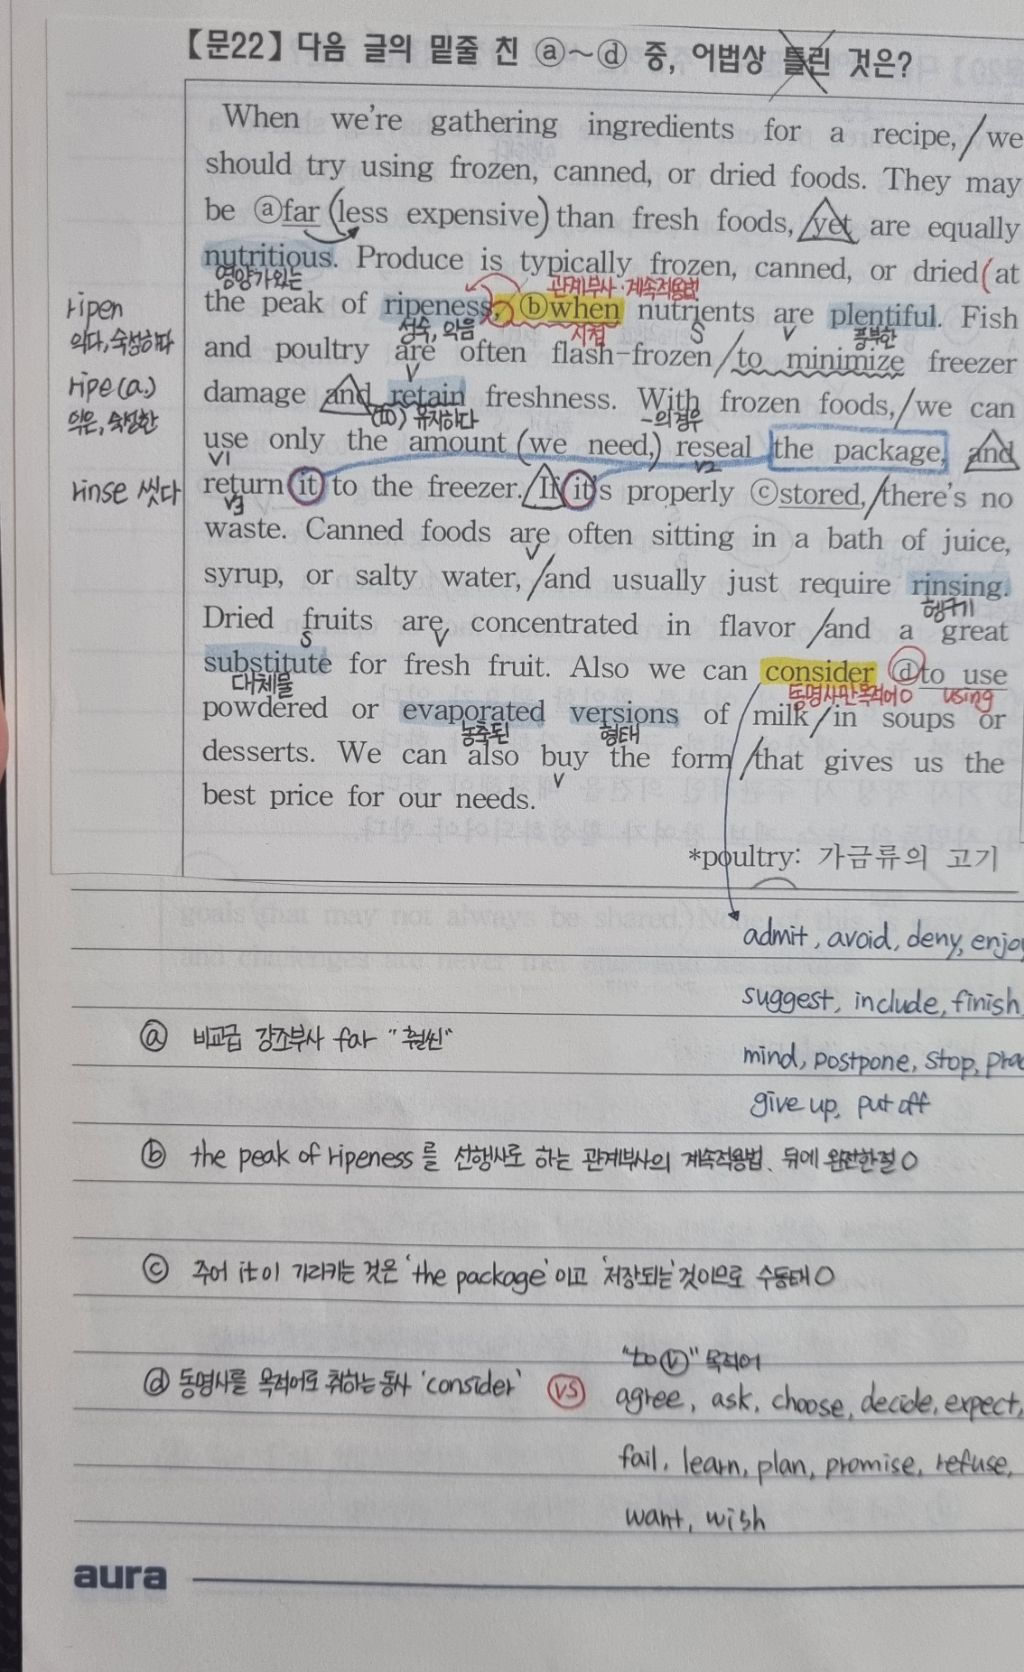 【문22】 다음 글의 밑줄 친 ⓐ~ⓓ 중, 어법상 틀린 것은?
When we're gathering ingredients for a recipe, / we
should try using frozen, canned, or dried foods. They may
be ⓐfar (less expensive) than fresh foods, yet are equally
nutritious. Produce is typically frozen, canned, or dried (at
영양가있는
관계부사·계속적용법
ripen
the peak of ripeness, ⓑwhen nutrients are plentiful. Fish
성숙, 익음
시점
S
V
풍부한
익다, 숙성하다
and poultry are often flash-frozen / to minimize freezer
V
ripe(a.)
damage and retain freshness. With frozen foods, / we can
익은, 숙성한
(to) 유지하다
~의 경우
use only the amount (we need,) reseal the package, and
V1
V2
rinse 씻다
return it to the freezer. / If it's properly ⓒstored, / there's no
V3
waste. Canned foods are often sitting in a bath of juice,
V
syrup, or salty water, / and usually just require rinsing.
헹구기
Dried fruits are concentrated in flavor / and a great
S
V
substitute for fresh fruit. Also we can consider ⓓto use
대체물
동명사만 목적어O
using
powdered or evaporated versions of / milk / in soups or
농축된
형태
desserts. We can also buy the form / that gives us the
V
best price for our needs.
*poultry: 가금류의 고기
admit, avoid, deny, enjoy
suggest, include, finish,
ⓐ 비교급 강조부사 far "훨씬"
mind, postpone, stop, prac
give up, put off
ⓑ the peak of ripeness 를 선행사로 하는 관계부사의 계속적용법. 뒤에 완전한절 O
ⓒ 주어 it이 가리키는 것은 'the package' 이고 '저장되는' 것이므로 수동태 O
"to ⓥ" 목적어
ⓓ 동명사를 목적어로 취하는 동사 'consider' VS agree, ask, choose, decide, expect,
fail, learn, plan, promise, refuse,
want, wish
aura